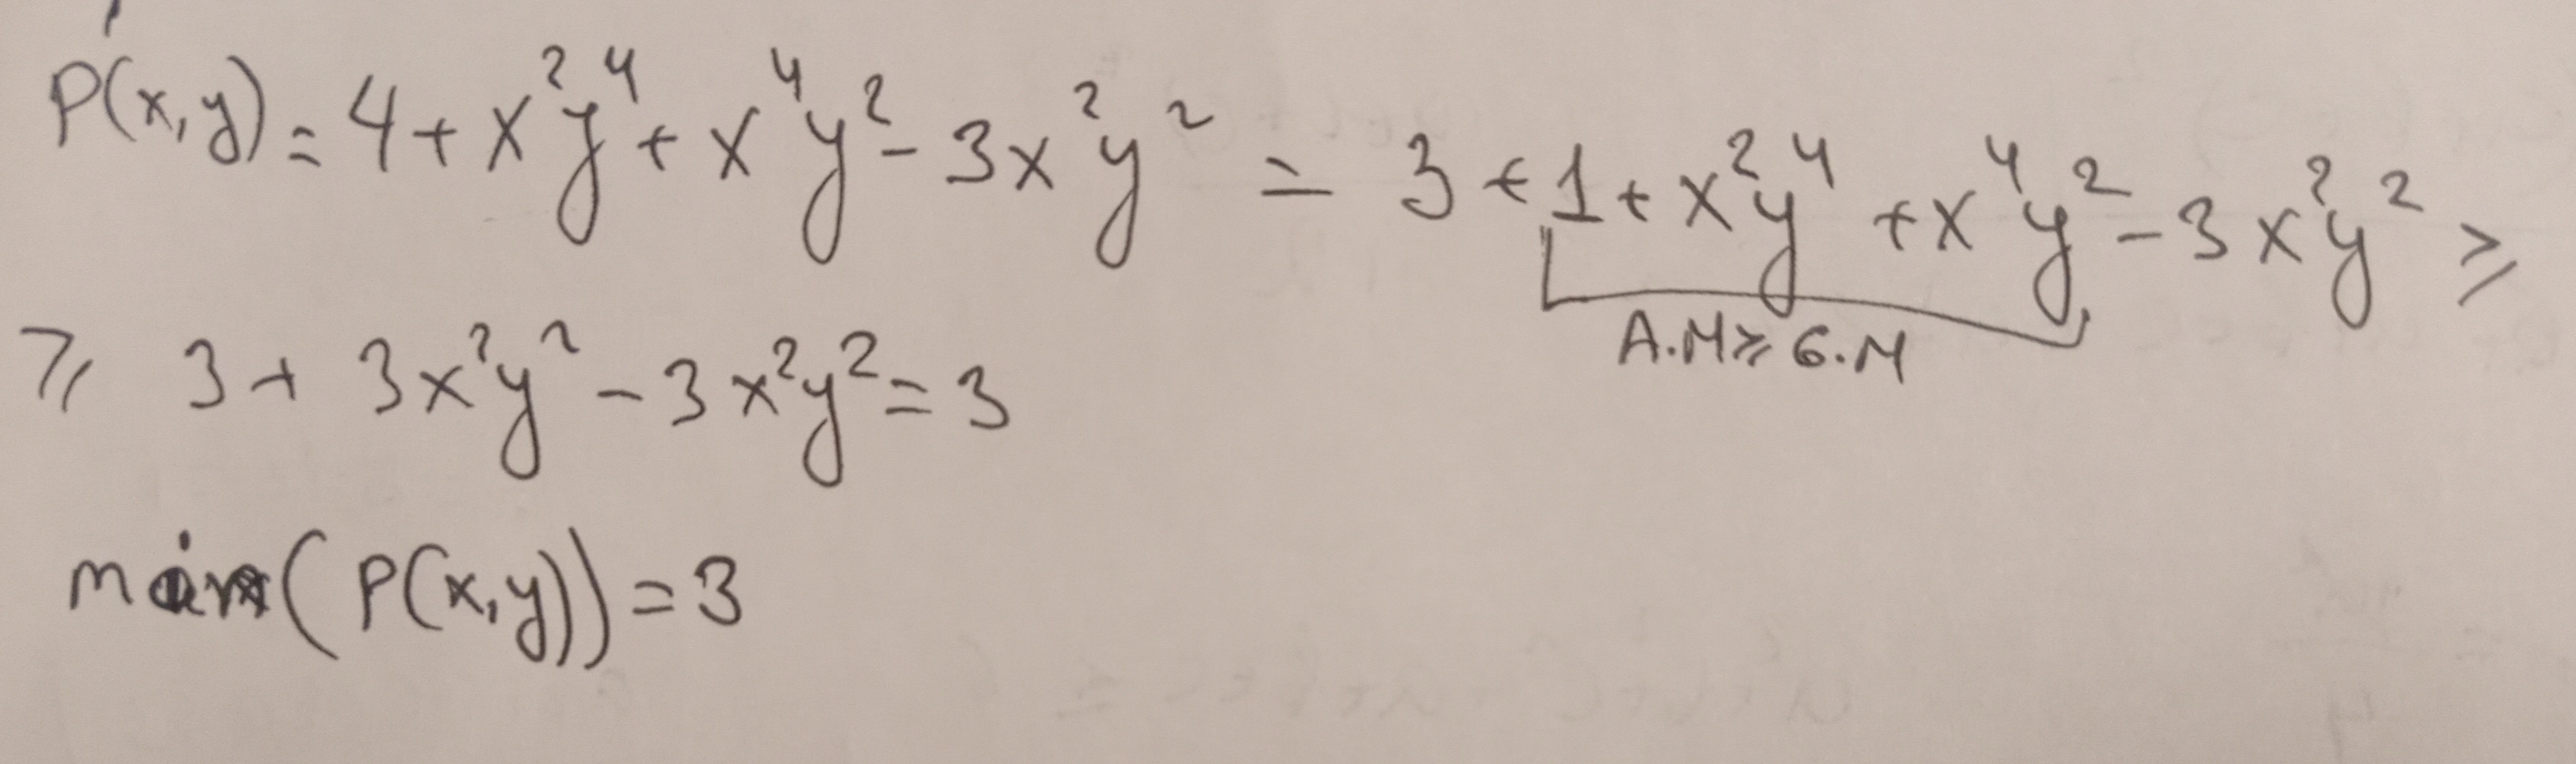 P(x,y) = 4 + x²y⁴ + x⁴y² - 3x²y² = 3 + 1 + x²y⁴ + x⁴y² - 3x²y² ≥
A.M ≥ G.M
≥ 3 + 3x²y² - 3x²y² = 3
min(P(x,y)) = 3